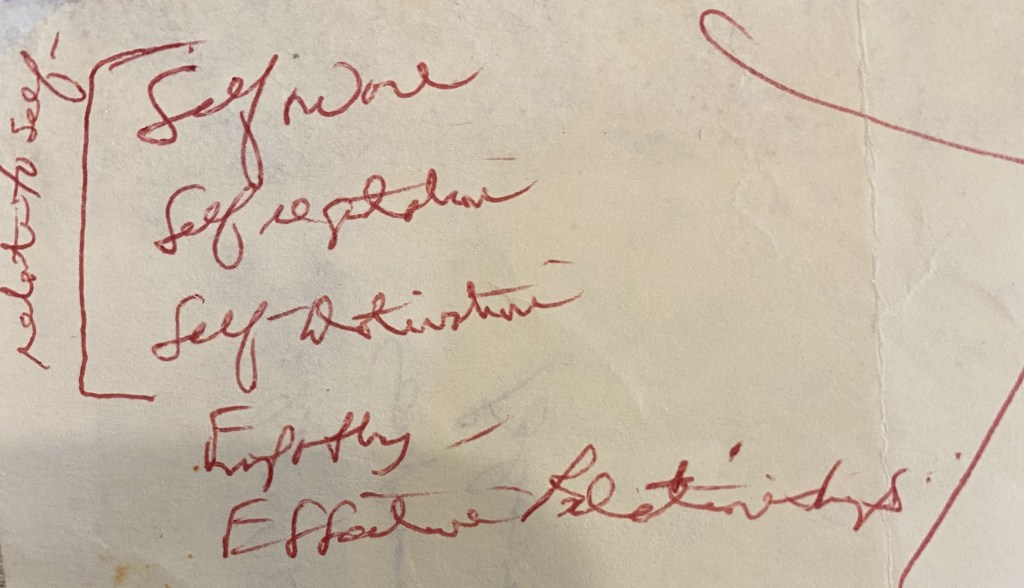 relate to self
Self
Self regulation
Self-Motivation
Empathy
Effective Relationships